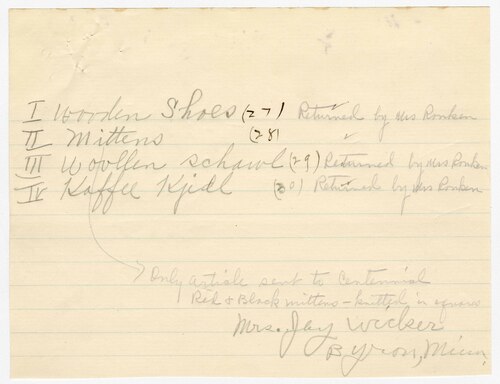 I Wooden Shoes (27) Returned by Mrs Romken
II Mittens (28) "
III Woollen schawl (29) Returned by Mrs Romken
IV Kaffee Kjidl (30) Returned by Mrs Romken
Only article sent to Centennial
Red & Black mittens - knitted in squares
Mrs. Jay Wicker
Byron, Minn.